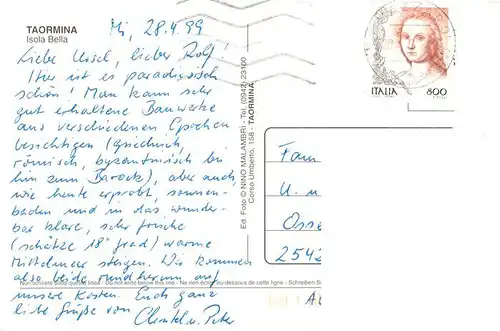 TAORMINA
Isola Bella
Mi, 28.4.99
Liebe Ursel, lieber Rolf!
Hier ist es paradiesisch
schön! Man kann sehr
gut erhaltene Bauwerke
aus verschiedenen Epochen
besichtigen (griechisch,
römisch, byzantinisch bis
hin zum Barock), aber auch,
wie heute erprobt, sonnen-
baden und in das wunder-
bar klare, sehr frische
(schätze 18° grad) warme
Mittelmeer steigen. Wir kommen
also beide rundherum auf
unsere Kosten. Euch ganz
liebe Grüße von
u. Peter
Non scrivere sotto questa linea! - Do not write below this line - Ne rien écrire au-dessous de cette ligne - Schreiben Si
Ed. Foto © NINO MALAMBRI - Tel. (0942) 23100
Corso Umberto, 158 - TAORMINA
ITALIA 800
Fam
U. u
Osse
2542